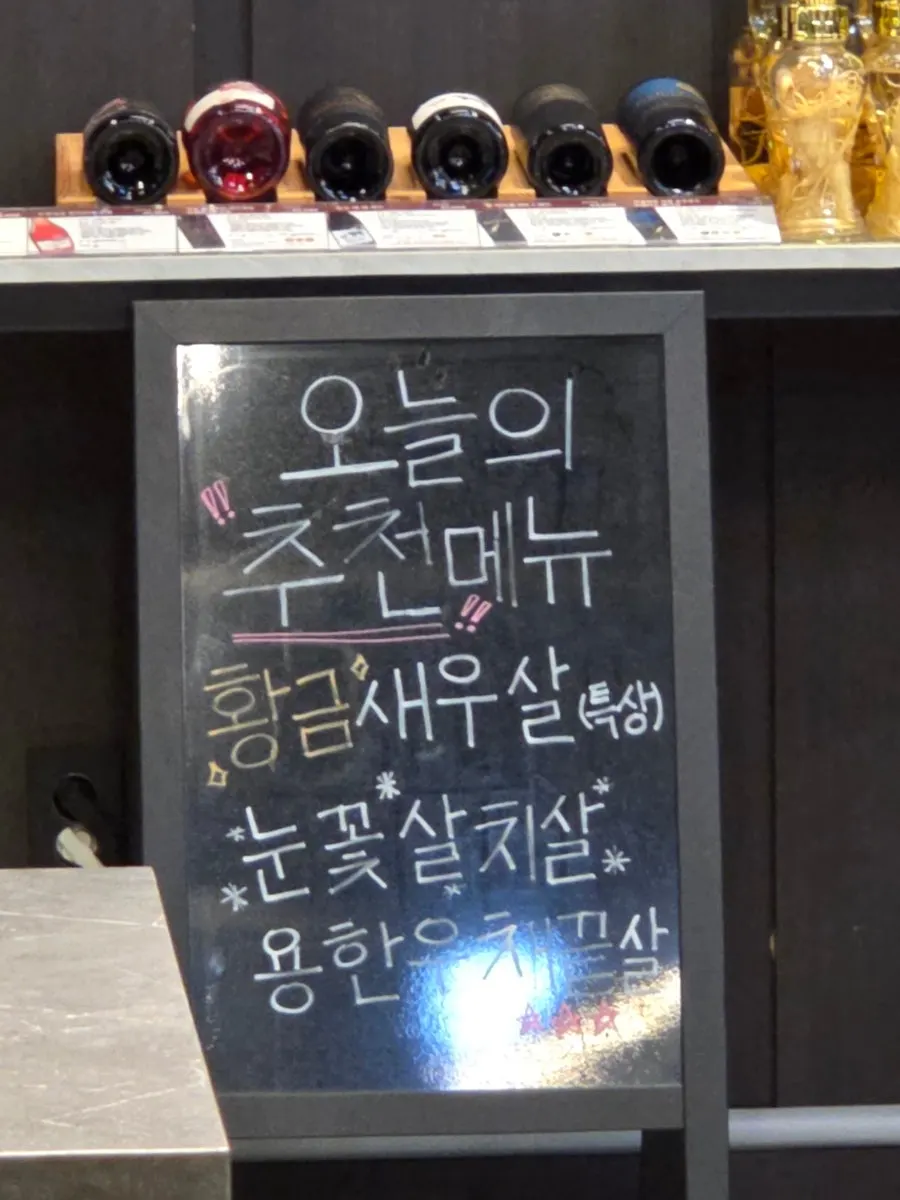 오늘의
!! 추천메뉴 !!
황금새우살(특상)
눈꽃살치살
용한우채끝살